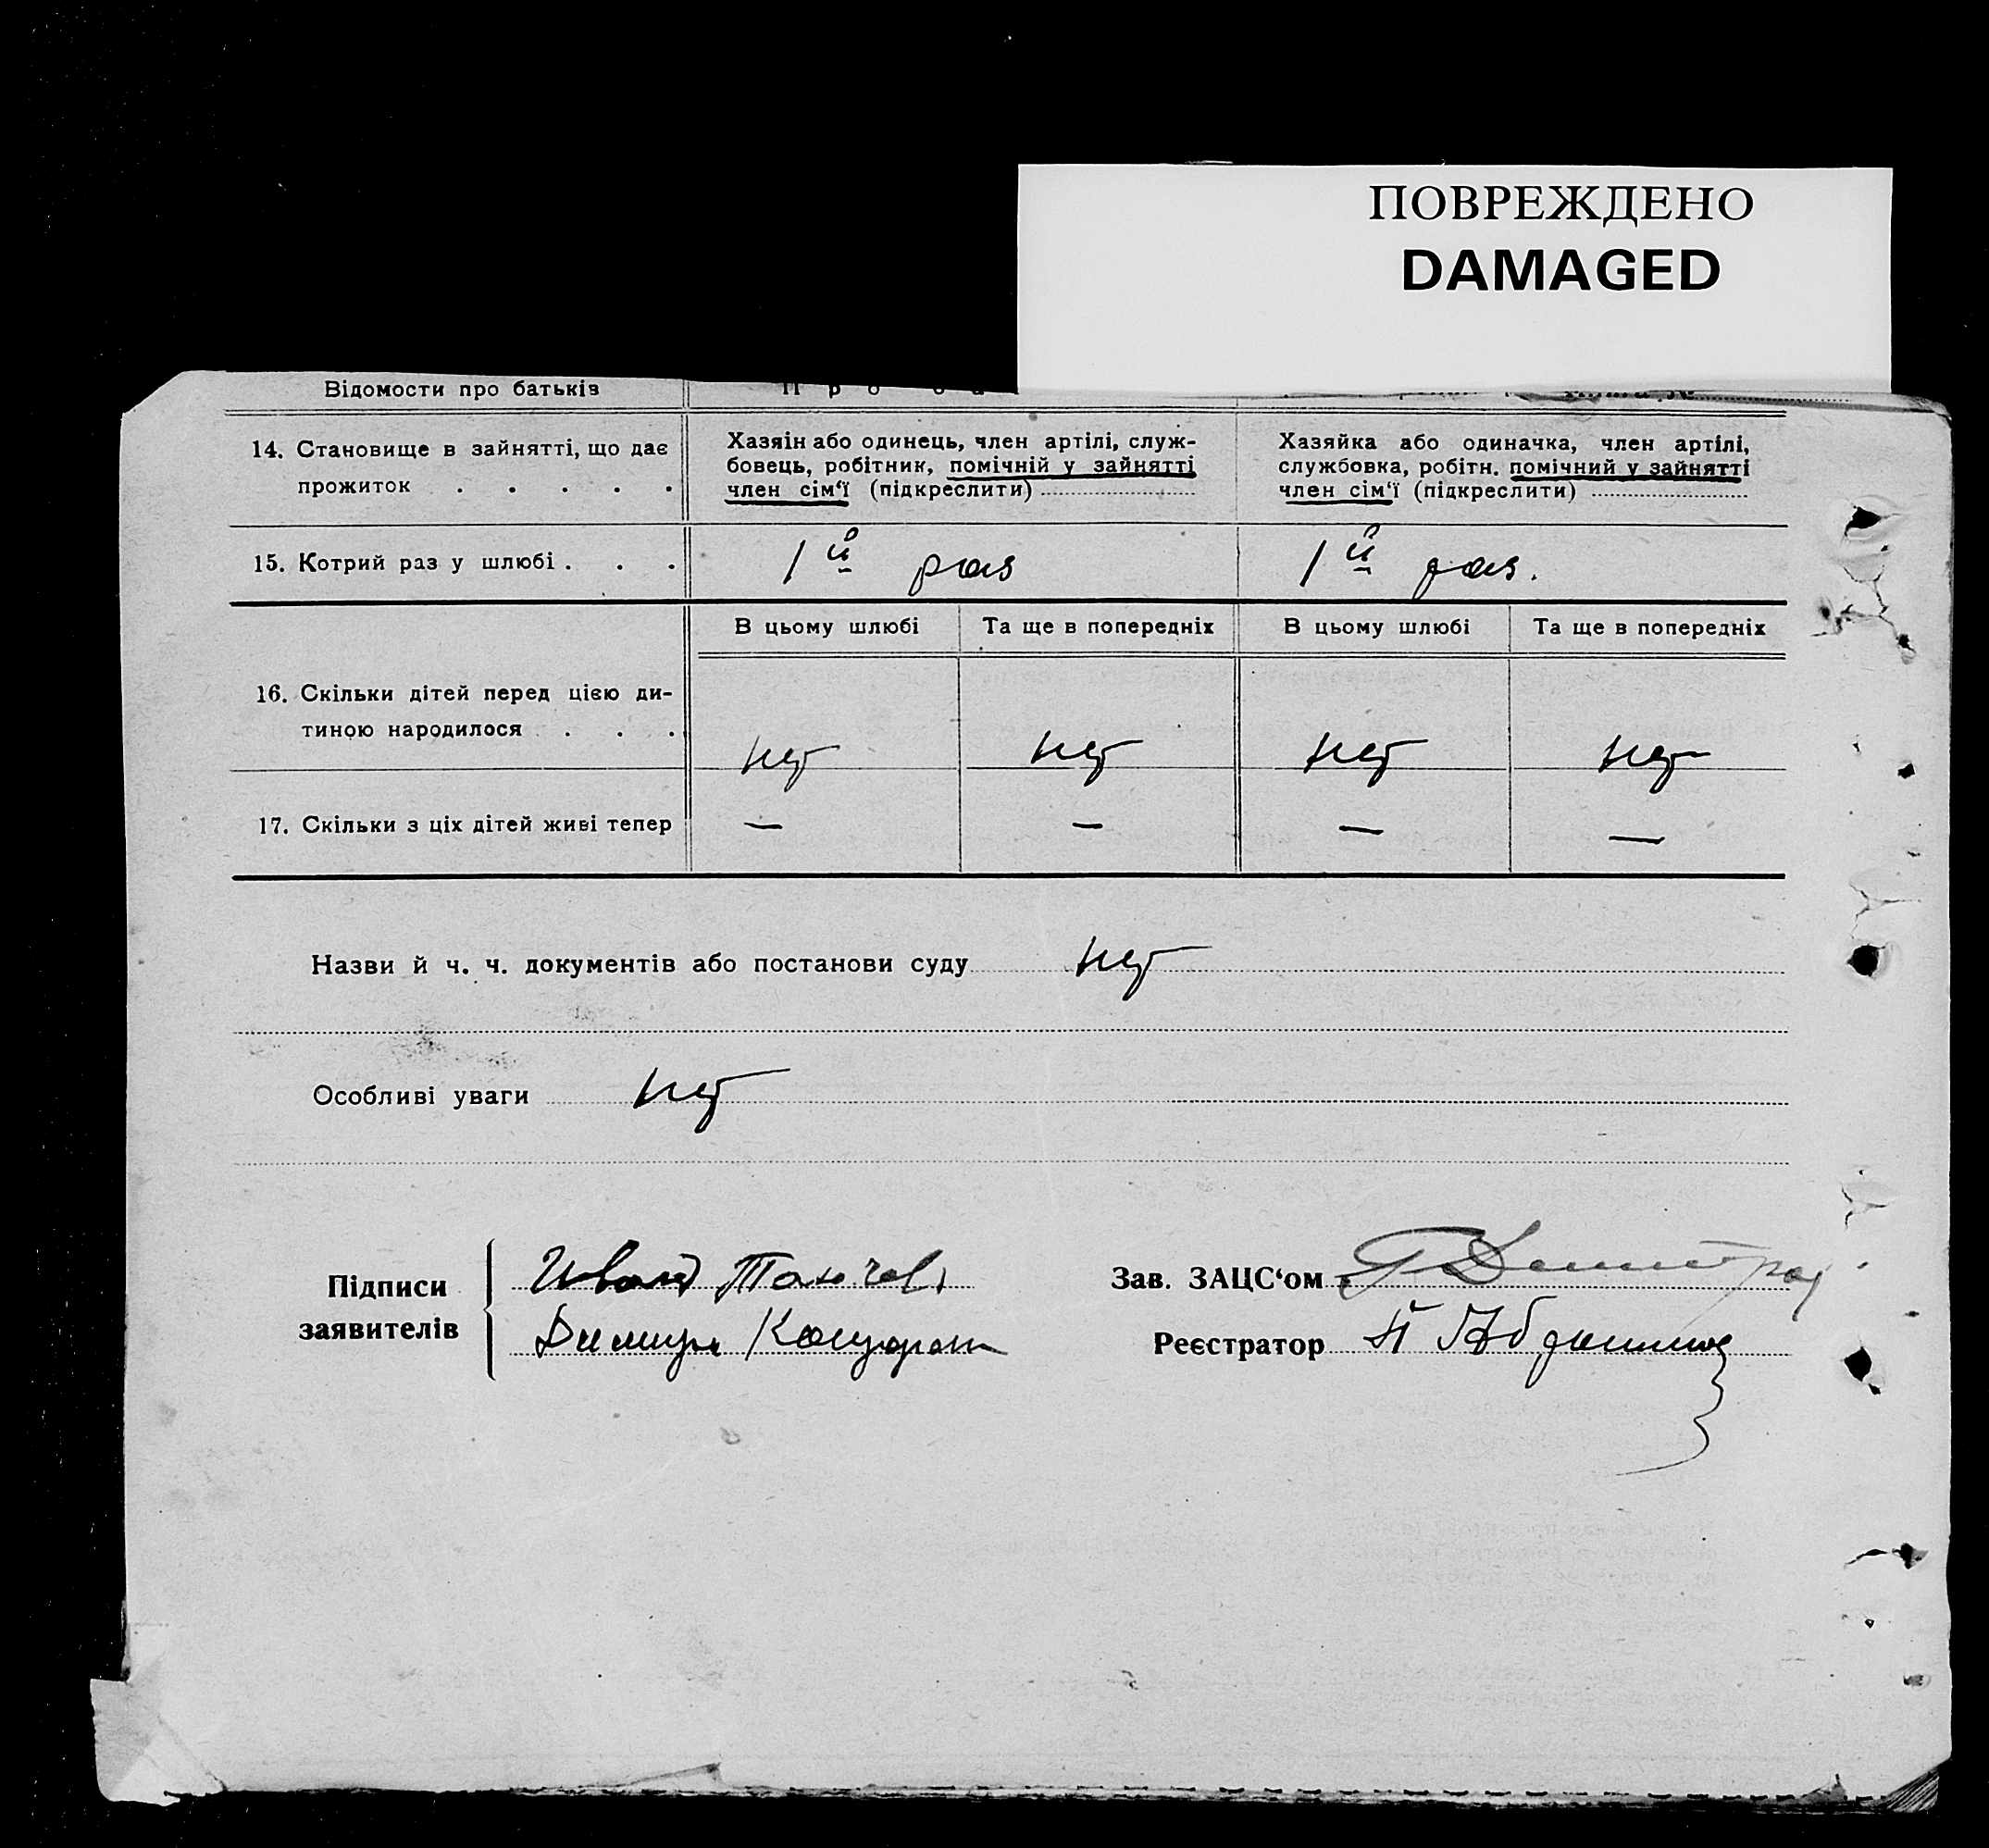 ПОВРЕЖДЕНО
DAMAGED
Відомости про батьків
П р о
14. Становище в зайнятті, що дає
прожиток . . . . .
Хазяін або одинець, член артілі, служ-
бовець, робітник, помічній у зайнятті
член сім‘ї (підкреслити)
Хазяйка або одиначка, член артілі,
службовка, робітн. помічний у зайнятті
член сім‘ї (підкреслити)
15. Котрий раз у шлюбі . . .
1й раз
1й раз.
В цьому шлюбі
Та ще в попередніх
В цьому шлюбі
Та ще в попередніх
16. Скільки дітей перед цією ди-
тиною народилося . . .
нет
нет
нет
нет
17. Скільки з ціх дітей живі тепер
—
—
—
—
Назви й ч. ч. документів або постанови суду нет
Особливі уваги нет
Підписи
заявителів
Иван
Зав. ЗАЦС‘ом
Реєстратор